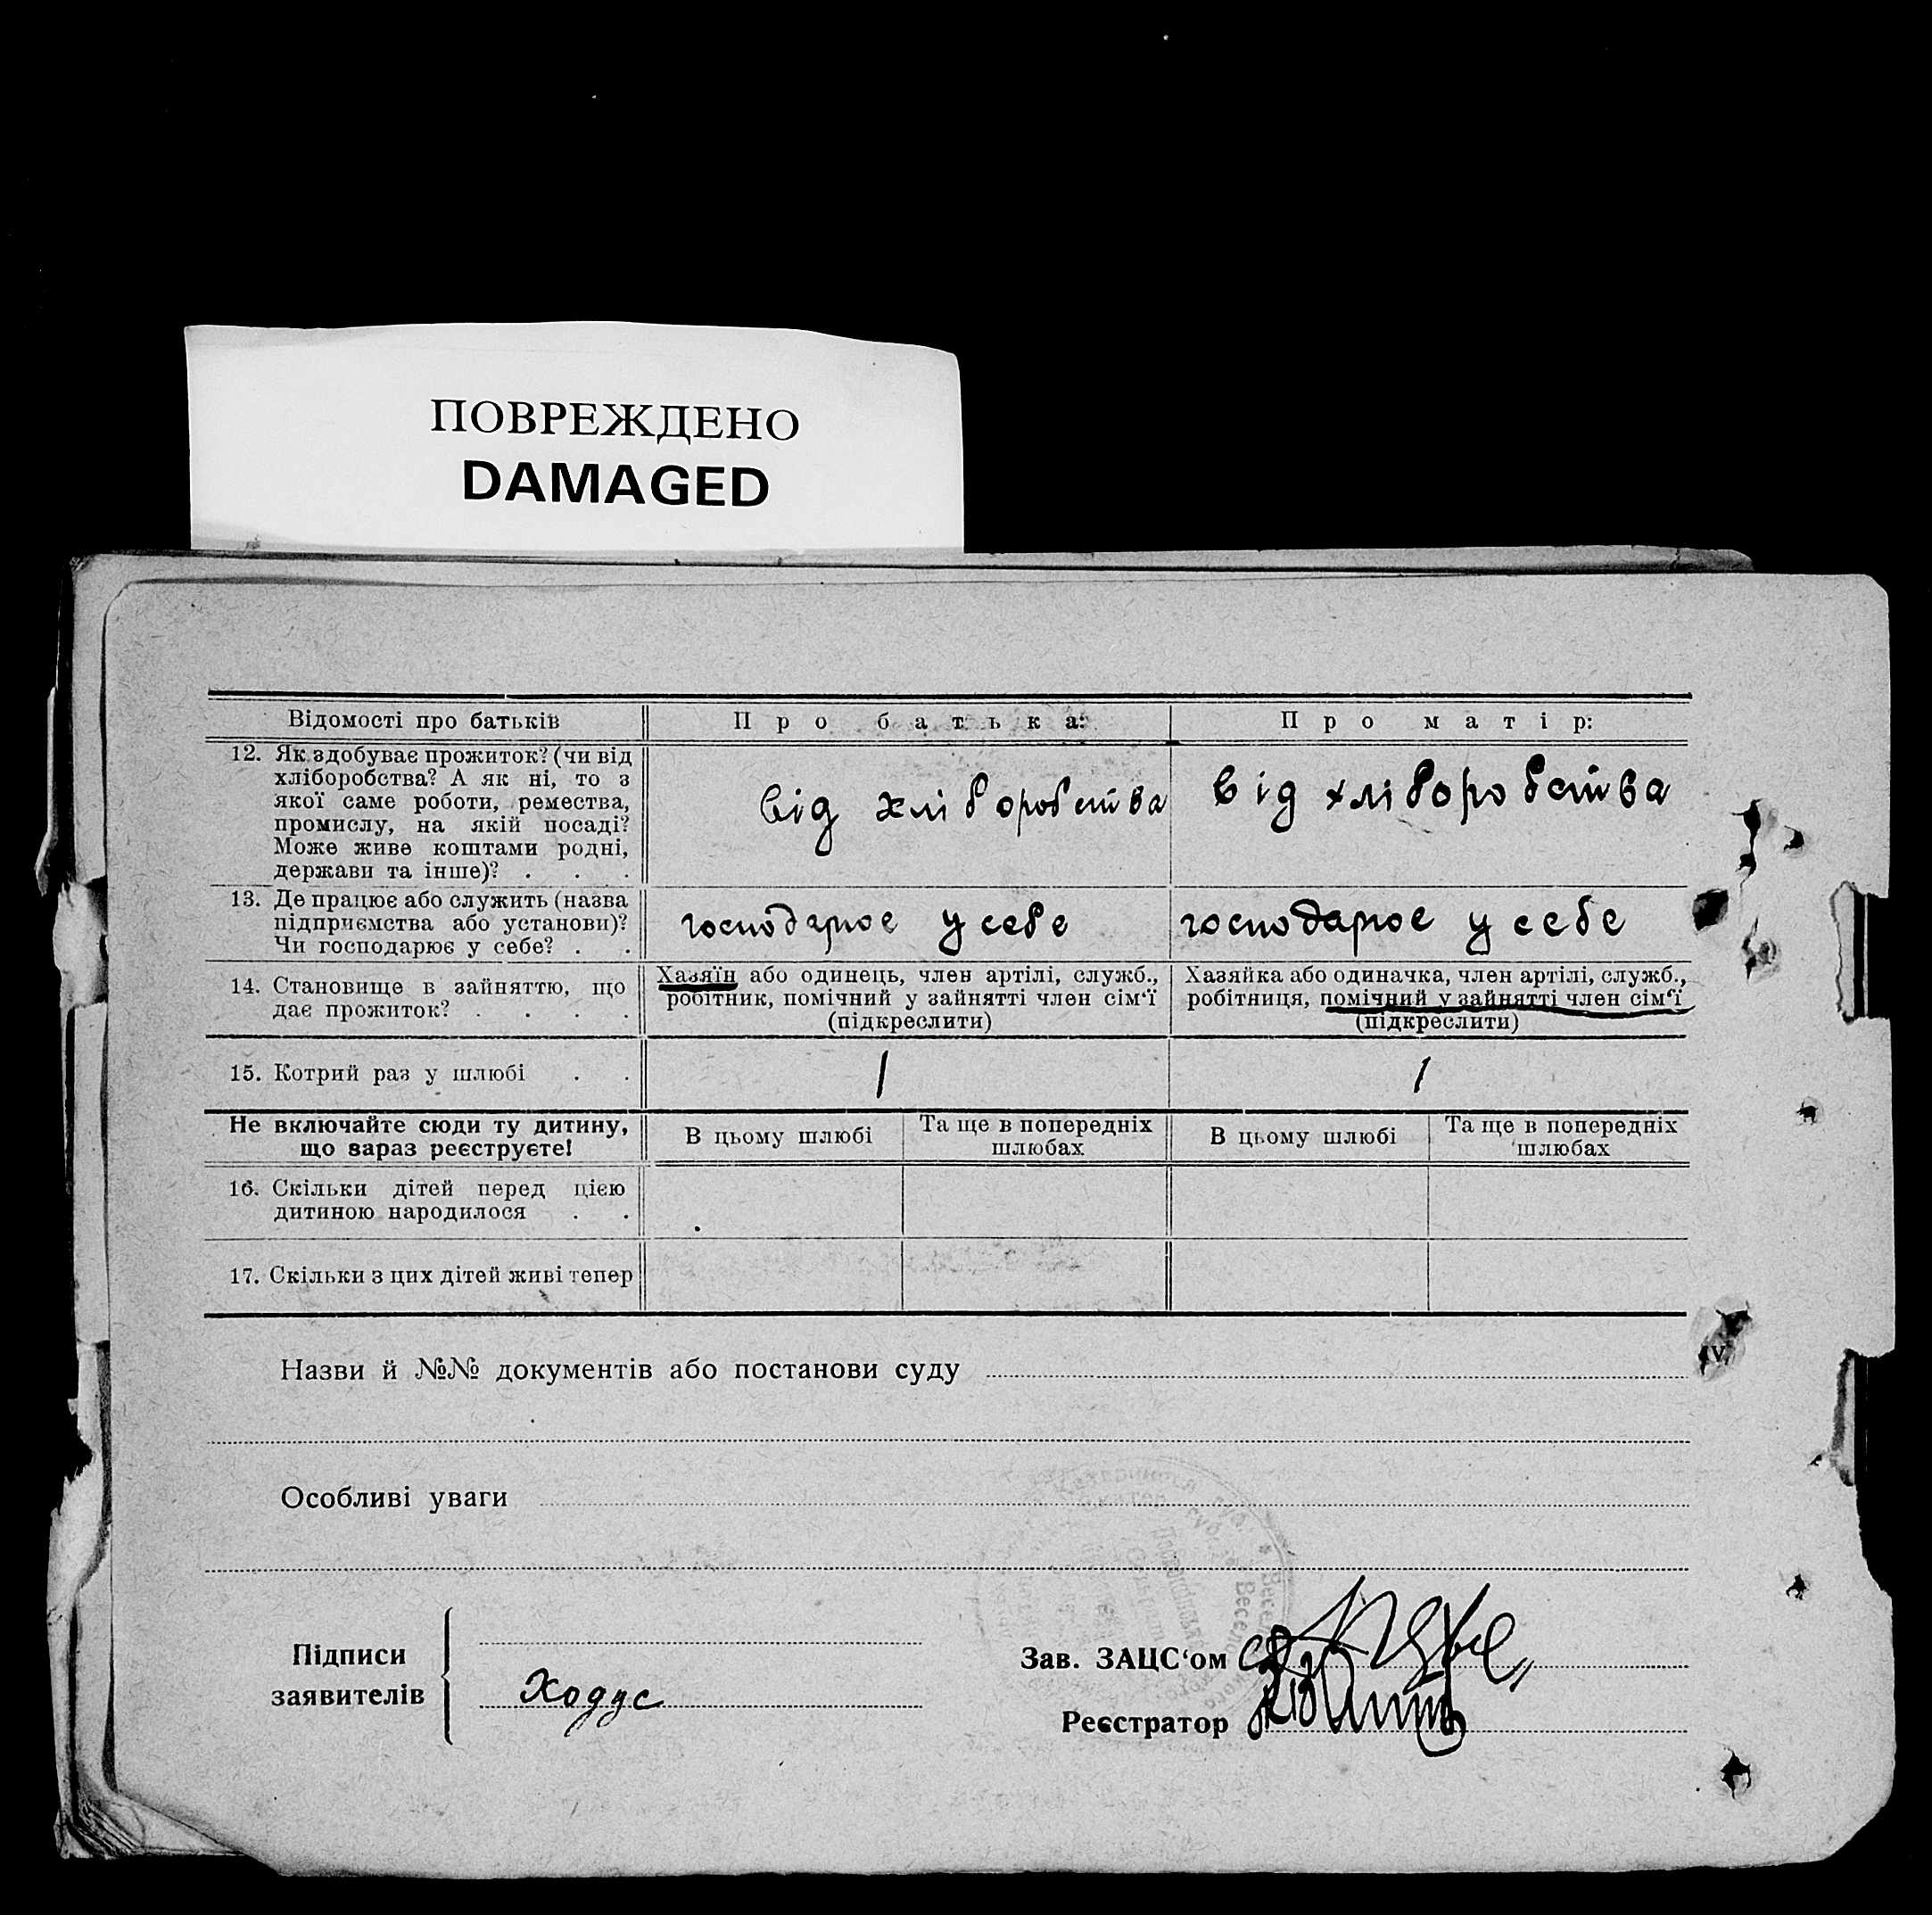 ПОВРЕЖДЕНО
DAMAGED
Відомості про батьків
Про батька:
Про матір:
12. Як здобуває прожиток? (чи від
хліборобства? А як ні, то з
якої саме роботи, ремества,
промислу, на якій посаді?
Може живе коштами родні,
держави та інше)? . . .
від хліборобства
від хліборобства
13. Де працює або служить (назва
підприємства або установи)?
Чи господарює у себе? . .
господарює у себе
господарює у себе
14. Становище в зайняттю, що
дає прожиток? . . . .
Хазяїн або одинець, член артілі, служб.,
робітник, помічний у зайнятті член сім‘ї
(підкреслити)
Хазяйка або одиначка, член артілі, служб.,
робітниця, помічний у зайнятті член сім‘ї
(підкреслити)
15. Котрий раз у шлюбі . .
1
1
Не включайте сюди ту дитину,
що зараз реєструєте!
В цьому шлюбі
Та ще в попередніх
шлюбах
В цьому шлюбі
Та ще в попередніх
шлюбах
16. Скільки дітей перед цією
дитиною народилося . .
17. Скільки з цих дітей живі тепер
Назви й №№ документів або постанови суду
Особливі уваги
Підписи
заявителів
Ходус
Зав. ЗАЦС‘ом
Реєстратор